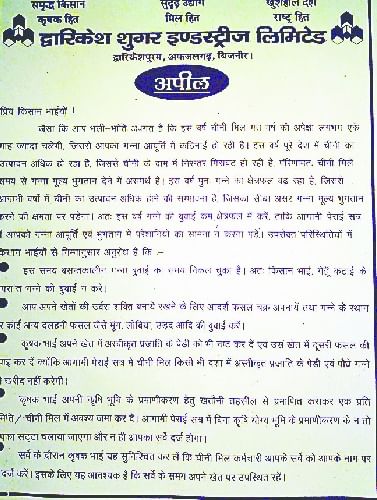 समृद्ध किसान सुदृढ़ उद्योग खुशहाल देश
कृषक हित मिल हित राष्ट्र हित
द्वारिकेश शुगर इण्डस्ट्रीज लिमिटेड
द्वारिकेशपुरम, अफजलगढ़, बिजनौर।
अपील
प्रिय किसान भाईयों !
जैसा कि आप भली-भांति अवगत है कि इस वर्ष चीनी मिल गत वर्ष की अपेक्षा लगभग एक
माह ज्यादा चलेगी, जिससे आपका गन्ना आपूर्ति में कठिनाई हो रही है। इस वर्ष पूरे देश में चीनी का
उत्पादन अधिक हो रहा है, जिससे चीनी के दाम में निरन्तर गिरावट हो रही है, परिणामतः चीनी मिलें
समय से गन्ना मूल्य भुगतान देने में असमर्थ है। इस वर्ष पुनः गन्ने का क्षेत्रफल बढ़ रहा है, जिससे
आगामी वर्षो में चीनी का उत्पादन अधिक होने की सम्भावना है, जिसका सीधा असर गन्ना मूल्य भुगतान
करने की क्षमता पर पडेगा। अतः इस वर्ष गन्ने की बुवाई कम क्षेत्रफल में करें, ताकि आगामी पेराई सत्र
में आपको गन्ना आपूर्ति एवं भुगतान में परेशानियों का सामना न करना पडे। उपरोक्त परिस्थितियों में
किसान भाईयों से निम्नानुसार अनुरोध है कि :-
इस समय बसन्तकालीन गन्ना बुवाई का समय निकल चुका है। अतः किसान भाई, गेहूँ कटाई के
उपरान्त गन्ने की बुवाई न करें।
आप अपने खेतों की उर्वरा शक्ति बनाये रखने के लिए आदर्श फसल चक्र अपनायें तथा गन्ने के स्थान
पर कोई अन्य दलहनी फसल जैसे मूंग, लोबिया, उड़द आदि की बुवाई करें।
कृषक भाई अपने खेत में अस्वीकृत प्रजाति की पेडी को भी नष्ट कर दें एवं उस खेत में दूसरी फसल की
बुवाई कर दें क्योंकि आगामी पेराई सत्र मे चीनी मिल किसी भी दशा में अस्वीकृत प्रजाति के पेडी एवं पौधे गन्ने
की खरीद नहीं करेगी।
कृषक भाई अपनी कृषि भूमि के प्रमाणीकरण हेतु खतौनी तहसील से प्रमाणित कराकर एक प्रति
समिति/ चीनी मिल में अवश्य जमा कर दें। आगामी पेराई सत्र में बिना कृषि योग्य भूमि के प्रमाणीकरण के न तो
आपका सट्टा चलाया जाएगा और न ही आपका सर्वे दर्ज होगा।
सर्वे के दौरान कृषक भाई यह सुनिश्चित कर लें कि चीनी मिल कर्मचारी आपके सर्वे को आपके नाम पर
दर्ज करें। इसके लिए यह आवश्यक है कि सर्वे के समय अपने खेत पर उपस्थित रहें।